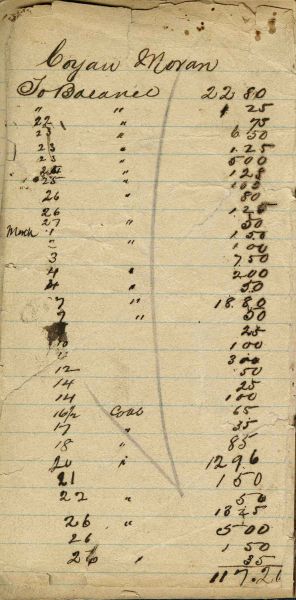 Coyan Moran
To Balance 22 80
" " 25
22 " 75
23 " 6 50
23 " 1 25
23 " 5 00
" 1 25
25 "
26 " 80
26 " 1 25
27 " 50
March 1 " 1 50
" " 1 00
3 7 50
4 " 2 00
4 " 50
7 " 18.80
7 " 50
25
10 1 00
3 00
12 50
14 25
14 1 00
16½ Coas 65
17 " 35
18 " 85
20 " 12 96
21 1 50
22 " 50
18 25
26 " 5 00
26 1 50
26 " 35
117.26